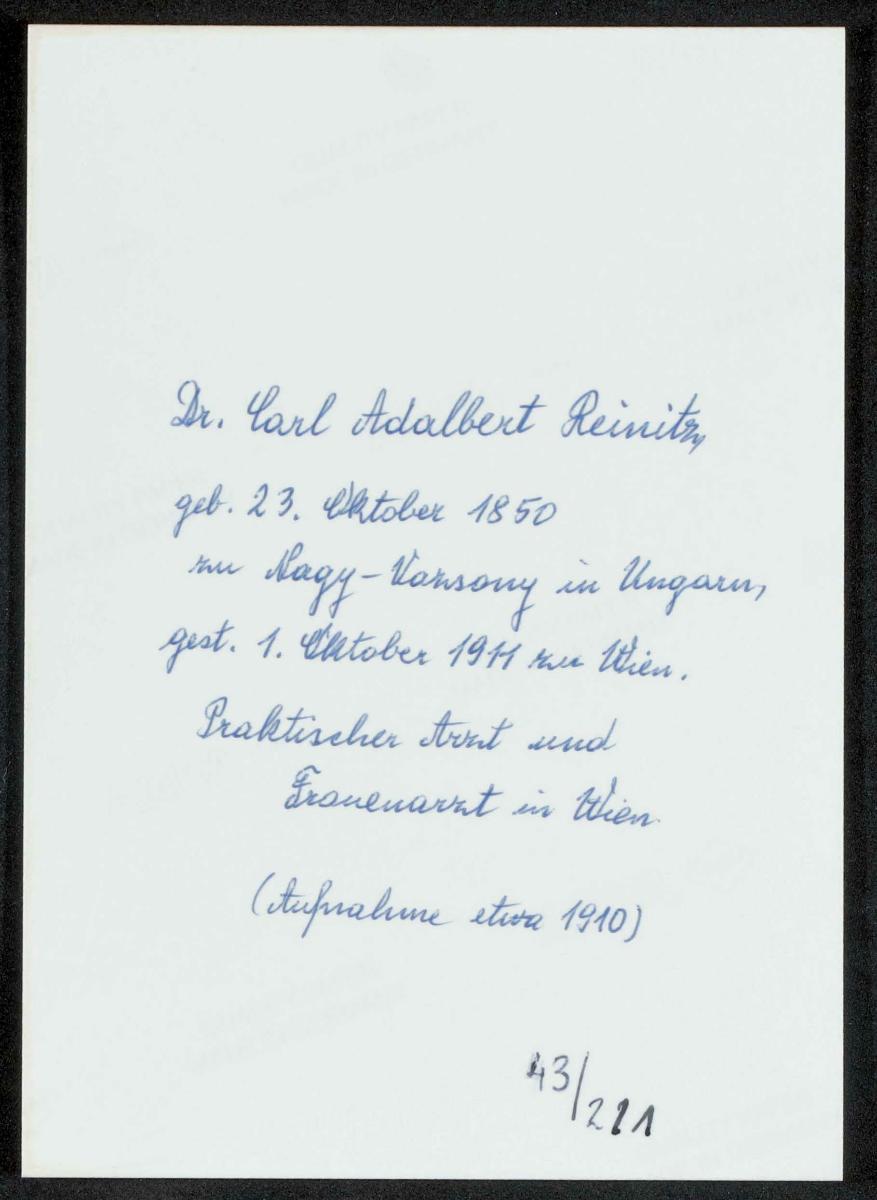 Dr. Carl Adalbert Reinitz,
geb. 23. Oktober 1850
zu Nagy-Vazsony in Ungarn,
gest. 1. Oktober 1911 zu Wien.
Praktischer Arzt und
Frauenarzt in Wien
(Aufnahme etwa 1910)
43/221